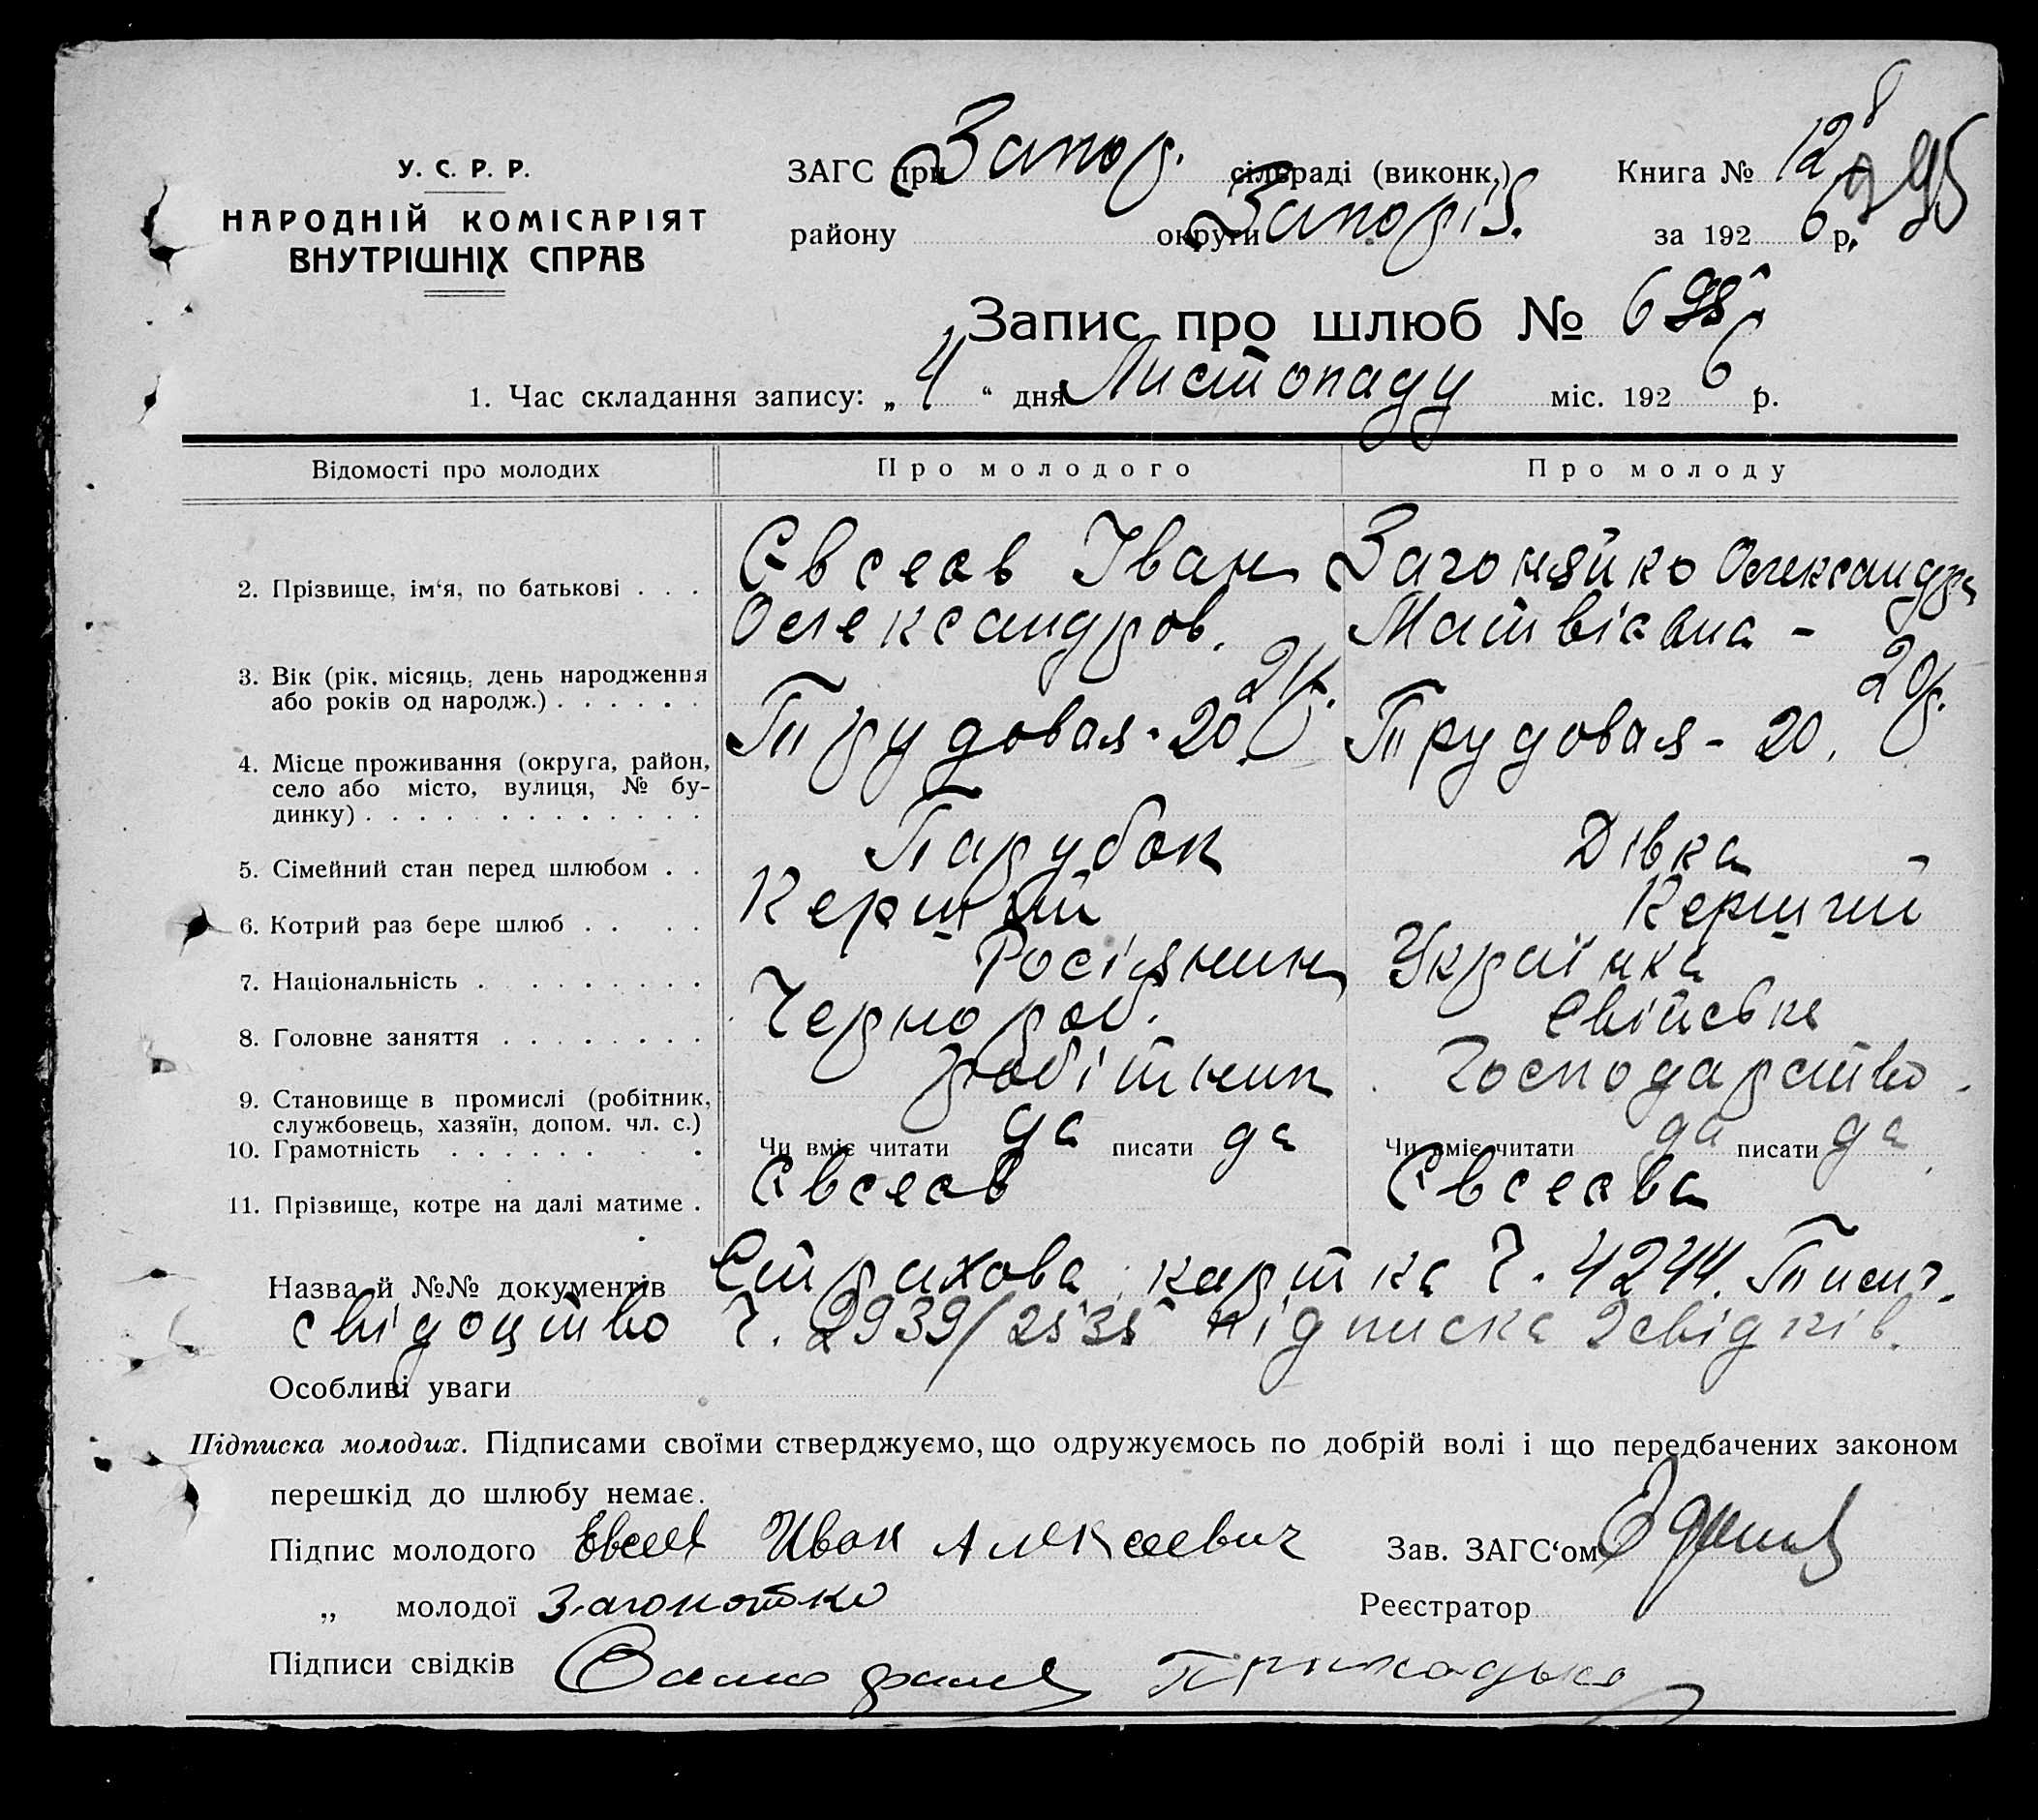 У. С. Р. Р.
НАРОДНІЙ КОМІСАРІЯТ
ВНУТРІШНІХ СПРАВ
ЗАГС при Запор. сільраді (виконк.) Книга № 12
району округи Запоріз. за 1926 р.
Запис про шлюб № 695
1. Час складання запису: „4“ дня Листопаду міс. 1926 р.
Відомості про молодих Про молодого Про молоду
2. Прізвище, ім‘я, по батькові . . . Євсеєв Іван Загоняйко Олександра
Олександров. Матвієвна -
3. Вік (рік, місяць, день народження або років од народж.) . . . . . . 21р. 20р.
4. Місце проживання (округа, район, село або місто, вулиця, № будинку) . . . . . . . . . . . . . Трудовая - 20. Трудовая - 20.
5. Сімейний стан перед шлюбом . . Парубок Дівка
6. Котрий раз бере шлюб . . . . Перший Перший
7. Національність . . . . . . . . Росіянин Українка
8. Головне заняття . . . . . . . . Чернороб. Свійське
9. Становище в промислі (робітник, службовець, хазяїн, допом. чл. с.) робітник Господарство -
10. Грамотність . . . . . . . . Чи вміє читати да писати да Чи вміє читати да писати да
11. Прізвище, котре на далі матиме . Євсеєв Євсеєва
Назва й №№ документів Страхова картка Ч. 4244. Писч.
свідоцтво Ч. 2939/2535 підписка 2 свідків.
Особливі уваги
Підписка молодих. Підписами своїми стверджуємо, що одружуємось по добрій волі і що передбачених законом
перешкід до шлюбу немає.
Підпис молодого Евсеев Иван Алексеевич Зав. ЗАГС‘ом
„ молодої Загонотко Реєстратор
Підписи свідків